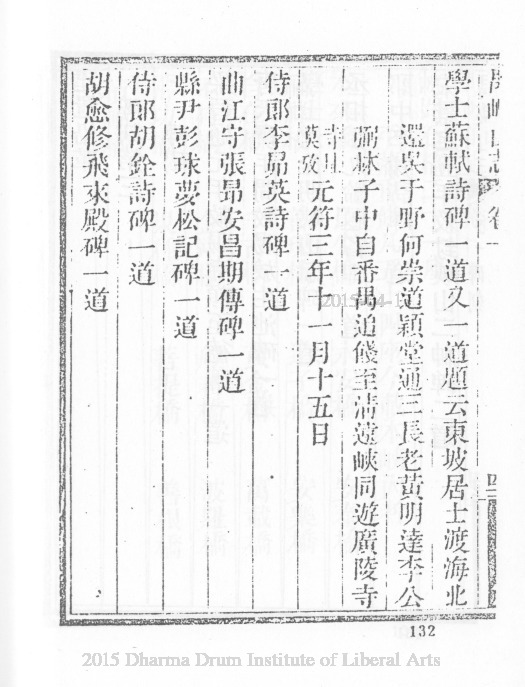 禺峽山志 卷一 四
學士蘇軾詩碑一道又一道題云東坡居士渡海北
還吳于野何崇道穎堂通三長老黃明達李公
弼林子中自番禺追餞至清遠峽同遊廣陵寺
寺
莫攷
元符三年十一月十五日
侍郎李昴英詩碑一道
曲江守張昴安昌期傳碑一道
縣尹彭球夢松記碑一道
侍郎胡銓詩碑一道
胡愈修飛來殿碑一道
132
2015 Dharma Drum Institute of Liberal Arts